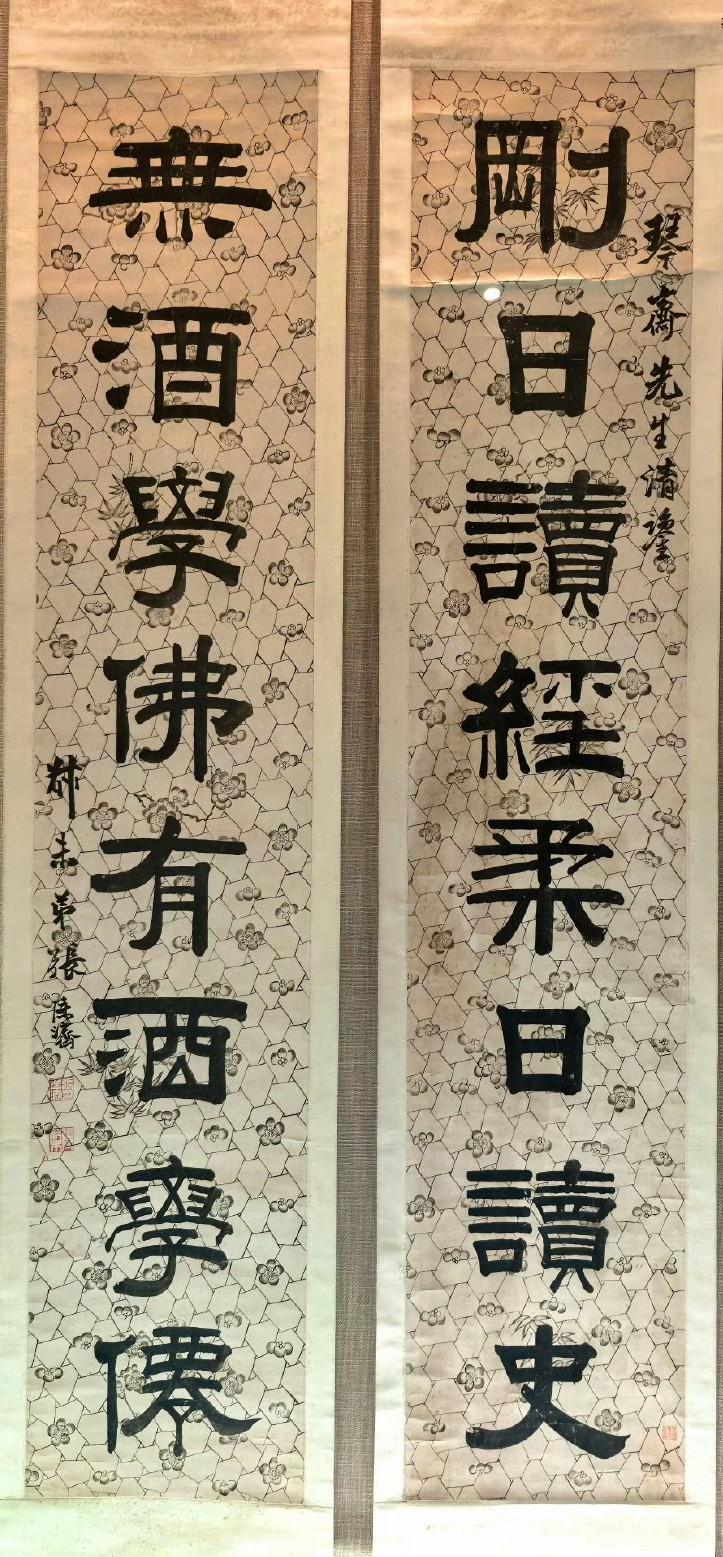 琴齋先生清鑒
剛日讀經柔日讀史
無酒學佛有酒學僊
弟張廷濟